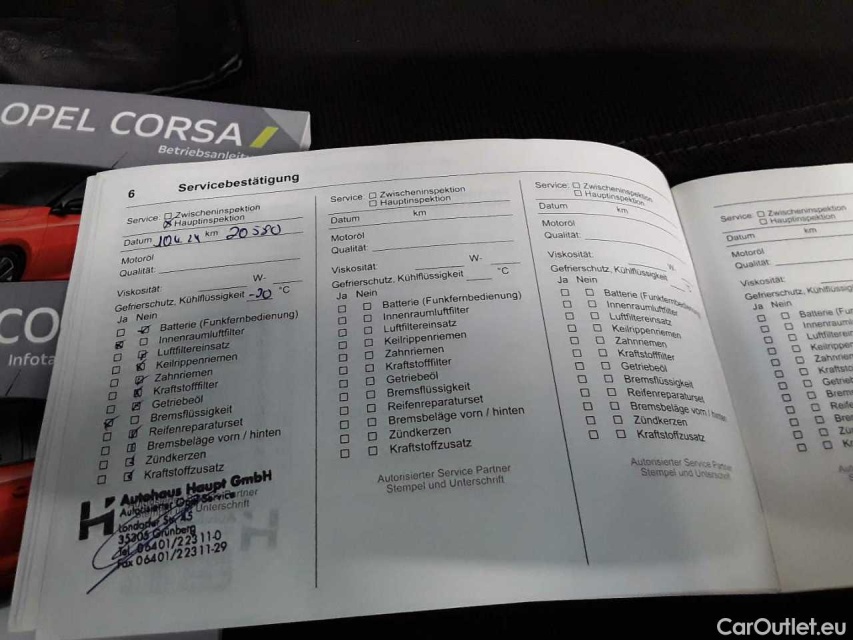 OPEL CORSA
Betriebsanleit
CO
Infota
6 Servicebestätigung
Service Zwischeninspektion
Hauptinspektion
Datum km 20550
Motoröl
Qualität:
Viskosität: W-
Gefrierschutz, Kühlflüssigkeit -30 °C
Ja Nein
Batterie (Funkfernbedienung)
Innenraumluftfilter
Luftfiltereinsatz
Keilrippenriemen
Zahnriemen
Kraftstofffilter
Getriebeöl
Bremsflüssigkeit
Reifenreparaturset
Bremsbeläge vorn / hinten
Zündkerzen
Kraftstoffzusatz
Autohaus Haupt GmbH
Autorisierter Opel Service
Londorfer Str. 45
35305 Grünberg
Tel. 06401/22311-0
Fax 06401/22311-29
Service Zwischeninspektion
Hauptinspektion
Datum km
Motoröl
Qualität:
Viskosität: W-
Gefrierschutz, Kühlflüssigkeit °C
Ja Nein
Batterie (Funkfernbedienung)
Innenraumluftfilter
Luftfiltereinsatz
Keilrippenriemen
Zahnriemen
Kraftstofffilter
Getriebeöl
Bremsflüssigkeit
Reifenreparaturset
Bremsbeläge vorn / hinten
Zündkerzen
Kraftstoffzusatz
Autorisierter Service Partner
Stempel und Unterschrift
Service: Zwischeninspektion
Hauptinspektion
Datum km
Motoröl
Qualität:
Viskosität: W-
Gefrierschutz, Kühlflüssigkeit
Ja Nein
Batterie (Funkfernbedienung)
Innenraumluftfilter
Luftfiltereinsatz
Keilrippenriemen
Zahnriemen
Kraftstofffilter
Getriebeöl
Bremsflüssigkeit
Reifenreparaturset
Bremsbeläge vorn / hinten
Zündkerzen
Kraftstoffzusatz
Autorisierter Service Partne
Stempel und Unterschrift
Service: Zwischeninspektion
Hauptinspektion
Datum km
Motoröl
Qualität:
Viskosität:
Gefrierschutz, Kühlflüssig
Ja Nein
Batterie (Fu
Innenraumlu
Luftfilterein
Keilrippen
Zahnriem
Kraftsto
Getrieb
Brem
Reife
Bre
Zü
K
CarOutlet.eu